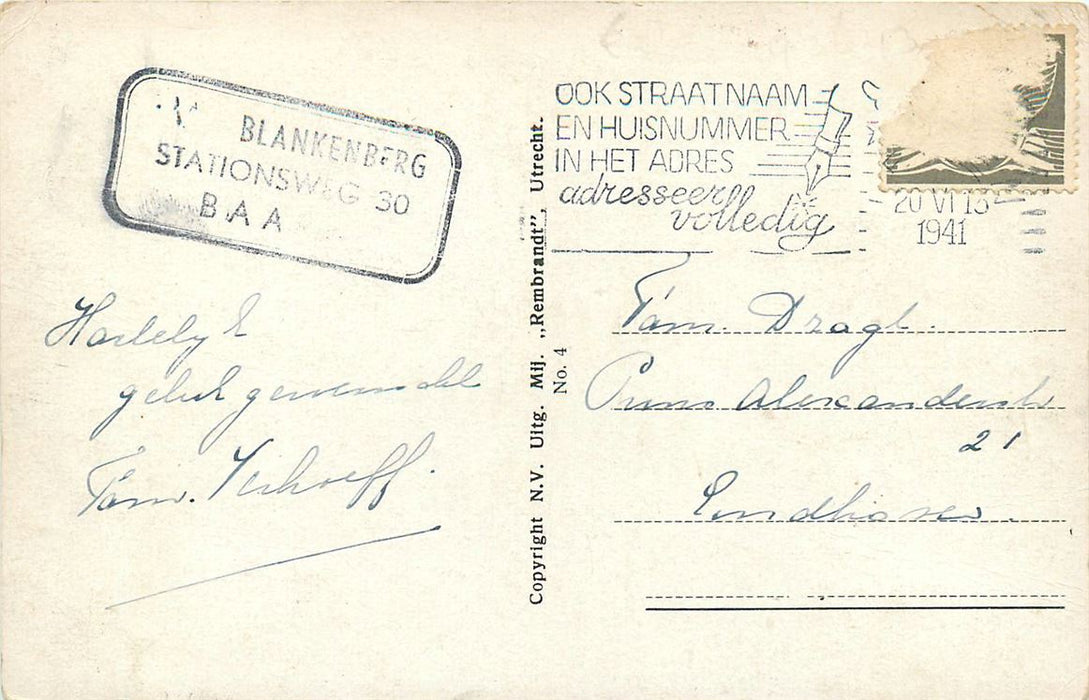 BLANKENBERG
STATIONSWEG 30
BAA
OOK STRAATNAAM
EN HUISNUMMER
IN HET ADRES
adresseer
volledig
20 VI 13
1941
Copyright N.V. Uitg. Mij. „Rembrandt”, Utrecht.
No. 4
Hartelijk
geluk gewenscht
Fam. Verhoeff.
Fam. Dragt.
Prins Alexanderstr
21
Eindhoven.